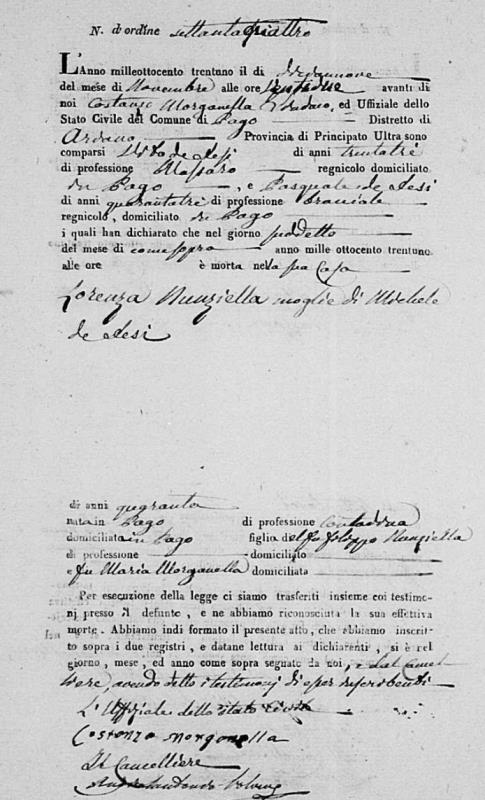 N. d'ordine settantaquattro
L'Anno milleottocento trentuno il di diecinnove
del mese di Novembre alle ore ventidue avanti di
noi Costanzo Morganella Sindaco, ed Uffiziale dello
Stato Civile del Comune di Pago Distretto di
Ariano Provincia di Principato Ultra sono
comparsi Vito de Lesi di anni trentatre
di professione Massaro regnicolo domiciliato
in Pago, e Pasquale de Lesi
di anni quarantatre di professione bracciale
regnicolo, domiciliato in Pago
i quali han dichiarato che nel giorno suddetto
del mese di come sopra anno mille ottocento trentuno
alle ore è morta nella sua Casa
Lorenza Nunziella moglie di Michele
de Lesi
di anni quaranta
nata in Pago di professione contadina
domiciliata in Pago figlia del fu Filippo Nunziella
di professione domiciliato
e fu Maria Morganella domiciliata
Per esecuzione della legge ci siamo trasferiti insieme coi testimo-
nj presso il defunto, e ne abbiamo riconosciuta la sua effettiva
morte. Abbiamo indi formato il presente atto, che abbiamo inscrit-
to sopra i due registri, e datane lettura ai dichiarenti, si è nel
giorno, mese, ed anno come sopra segnato da noi, e dal cancel
liere, avendo detto i testimonj di esser inscribenti
L'Uffiziale dello stato Civile
Costanzo Morganella
Il Cancelliere